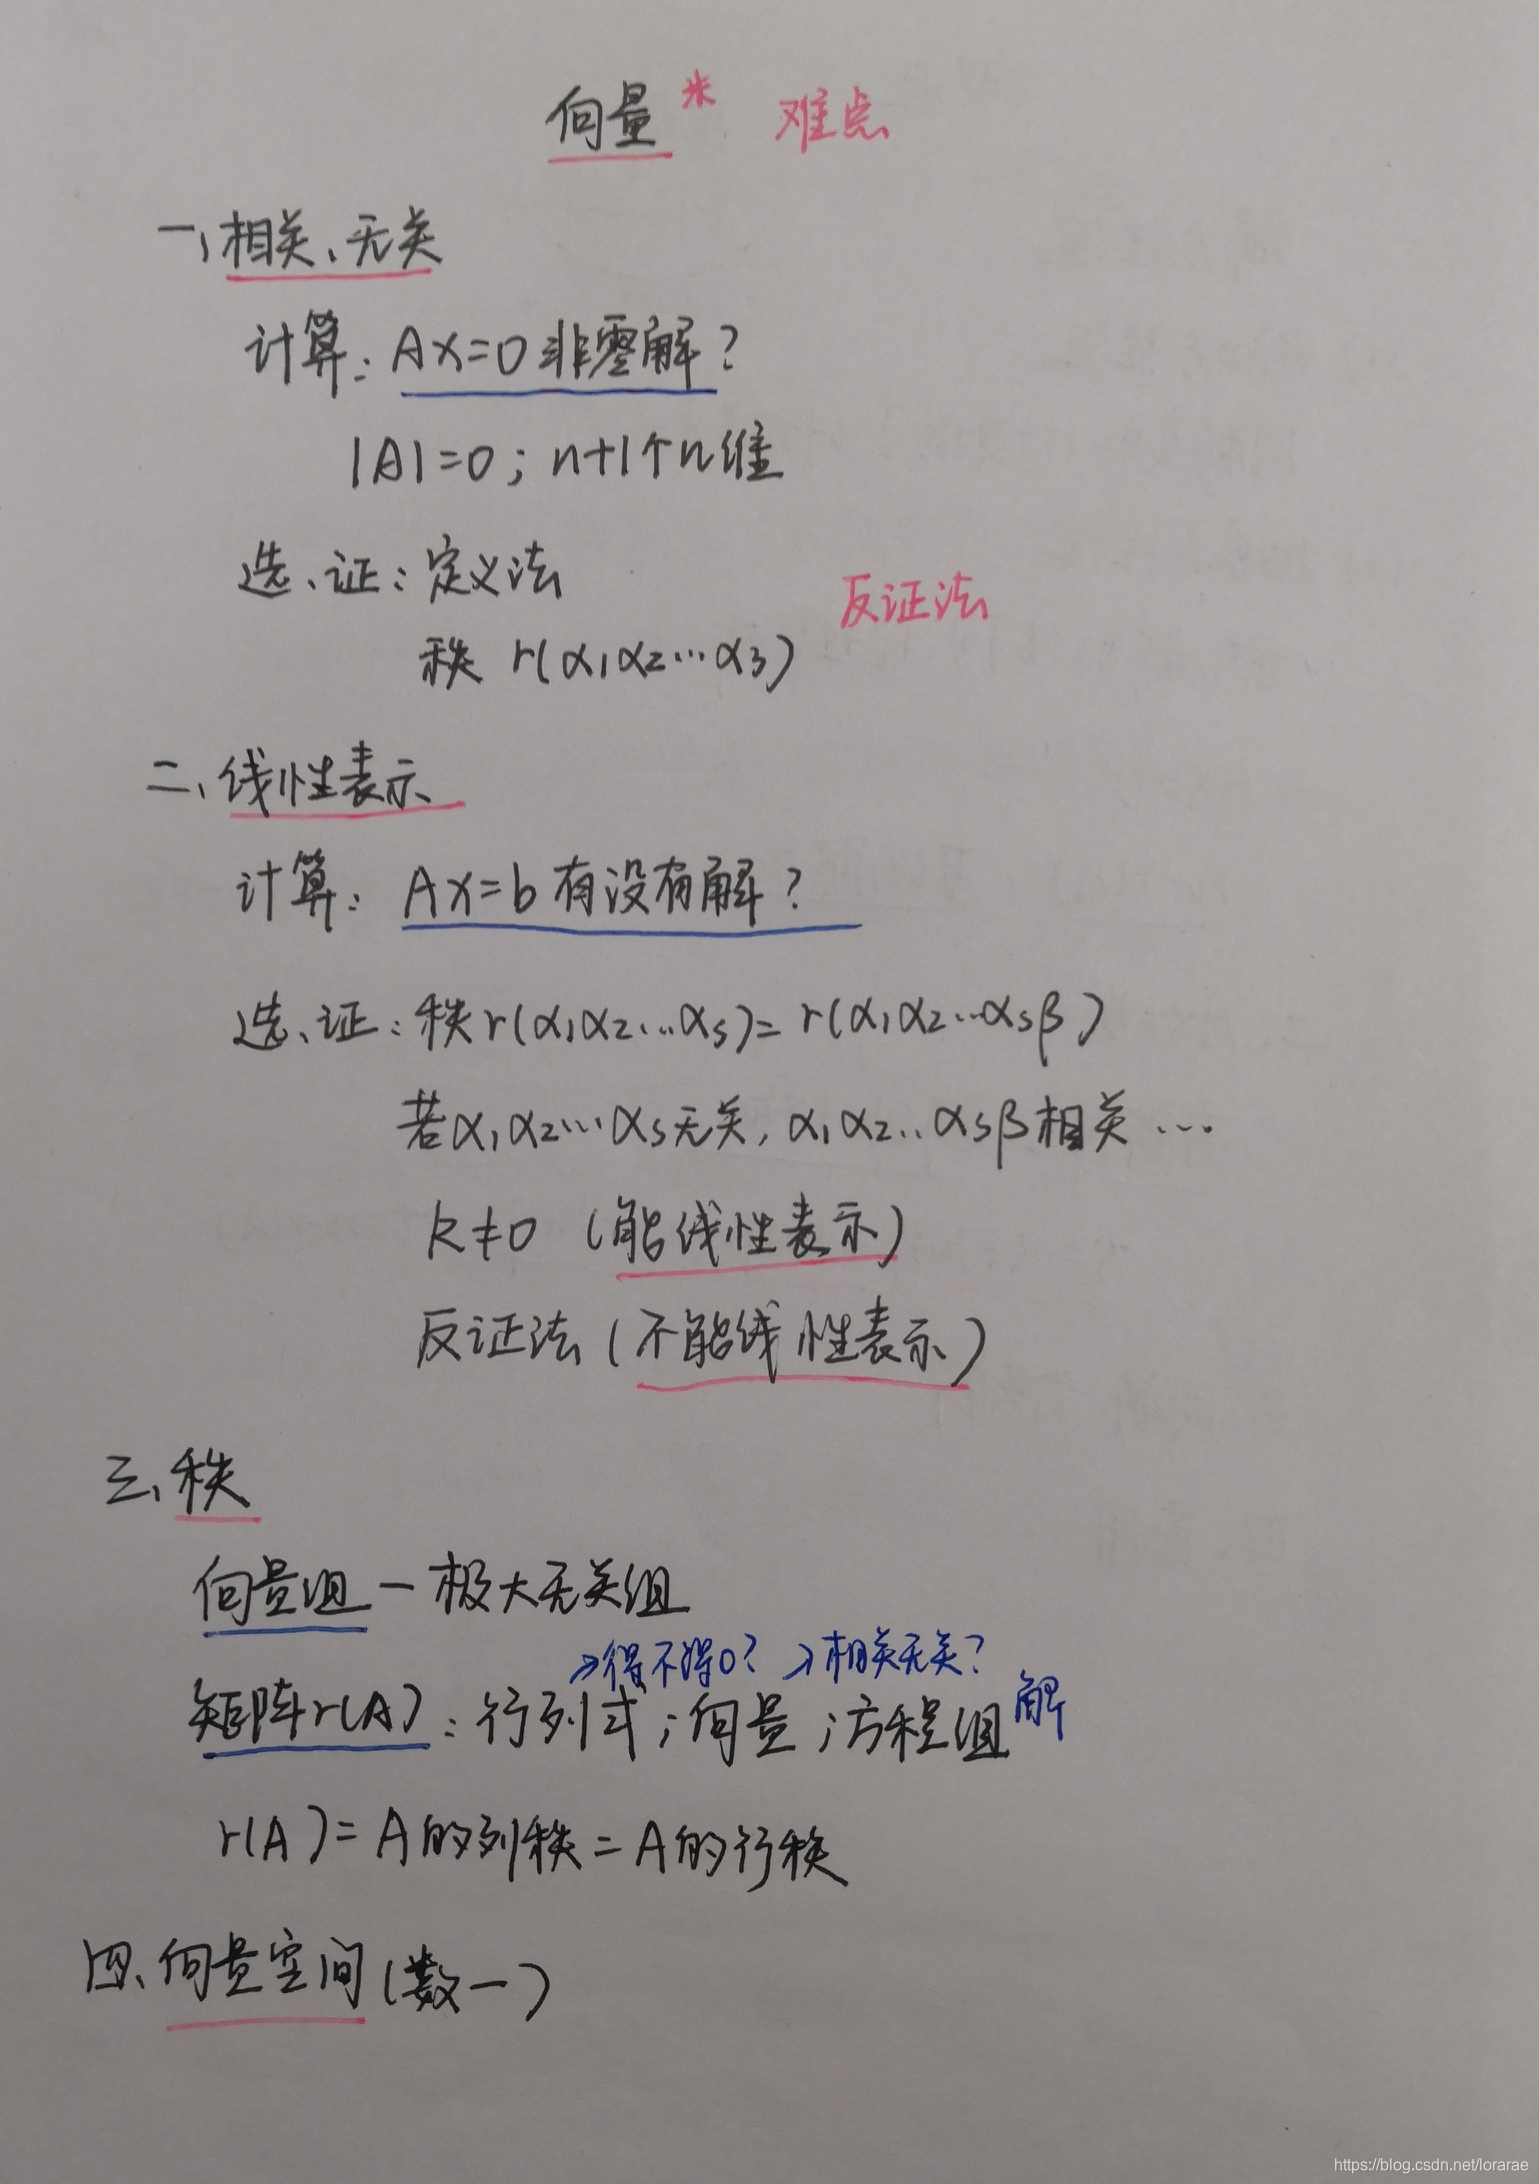 向量* 难点
一、相关、无关
计算：Ax=0非零解？
|A|=0；n+1个n维
选、证：定义法
反证法
秩 r(α₁α₂…α₃)
二、线性表示
计算：Ax=b有没有解？
选、证：秩r(α₁α₂…αs)=r(α₁α₂…αsβ)
若α₁α₂…αs无关，α₁α₂..αsβ相关…
k≠0（能线性表示）
反证法（不能线性表示）
三、秩
向量组－极大无关组
→得不得0？ →相关无关？
矩阵r(A)：行列式；向量；方程组解
r(A)=A的列秩=A的行秩
四、向量空间(数一)
https://blog.csdn.net/lorarae